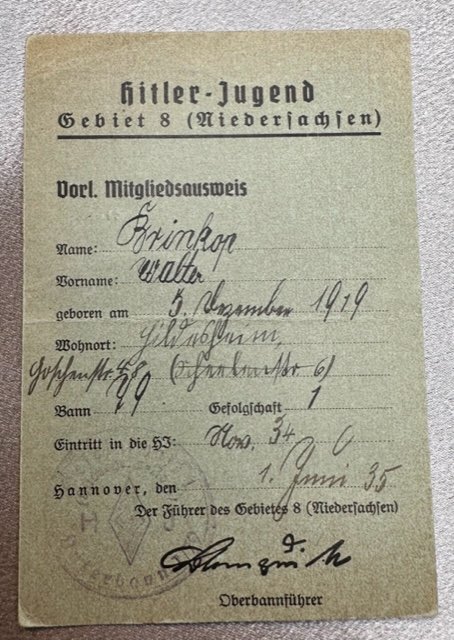 Hitler-Jugend
Gebiet 8 (Niedersachsen)
Vorl. Mitgliedsausweis
Name: Brinkop
Vorname: Walter
geboren am 5. Dezember 1919
Wohnort: Hildesheim,
Goschenstr. 48 (
6)
Bann 79 Gefolgschaft 1
Eintritt in die HJ: Nov. 34
Hannover, den 1. Juni 35
Der Führer des Gebietes 8 (Niedersachsen)
Oberbannführer
H J